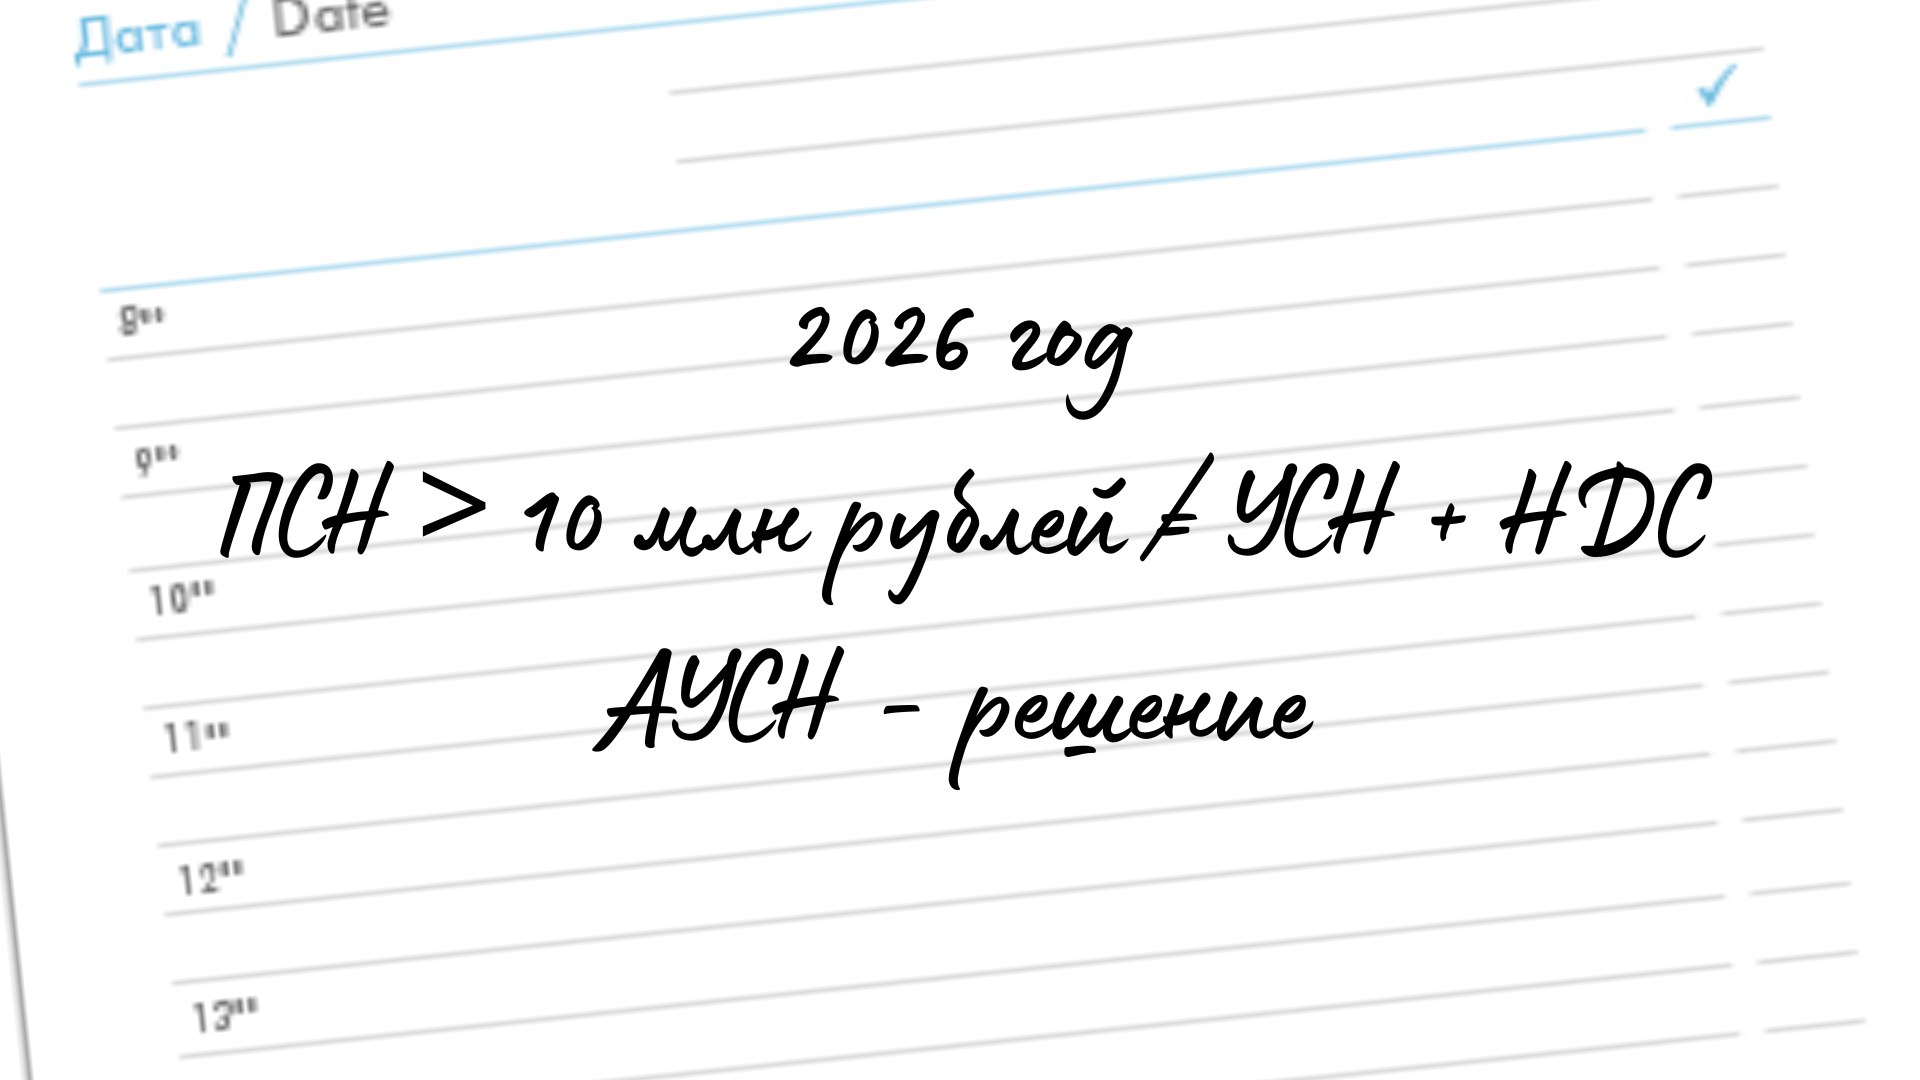 Дата / Date
8⁰⁰
2026 год
9⁰⁰
ПСН > 10 млн рублей ≠ УСН + НДС
10⁰⁰
АУСН - решение
11⁰⁰
12⁰⁰
13⁰⁰